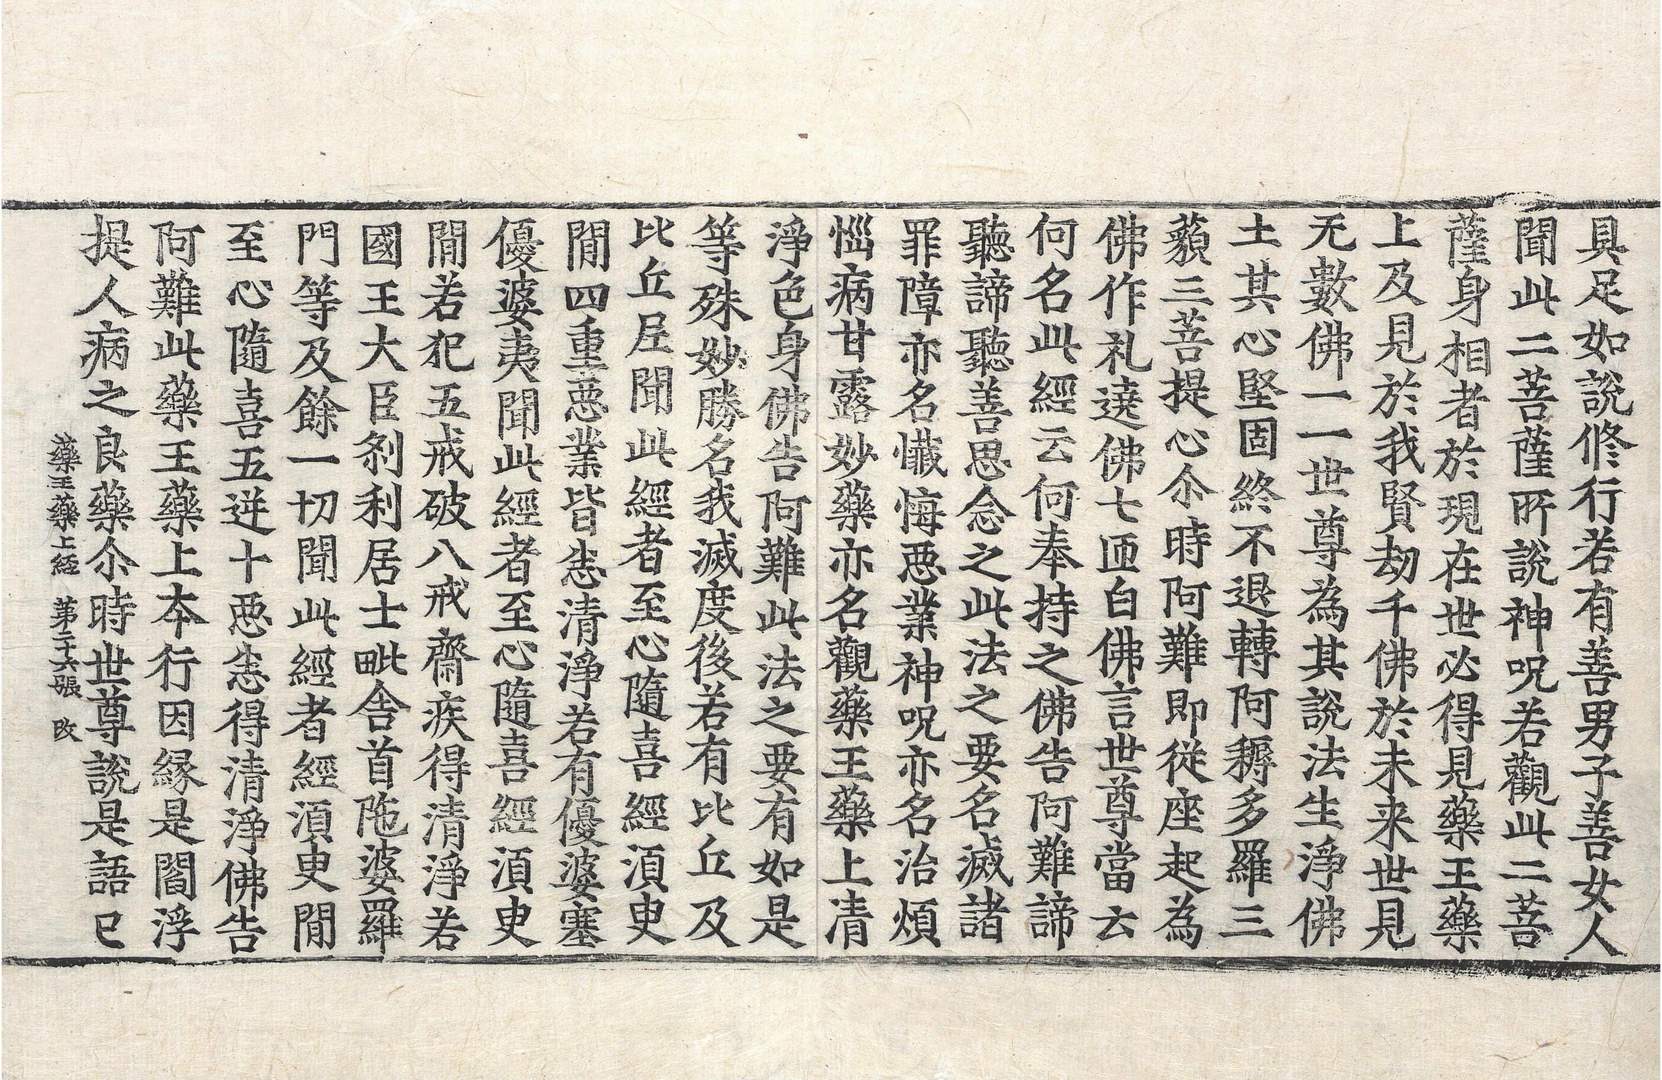 具足如說修行若有善男子善女人
聞此二菩薩所說神呪若觀此二菩
薩身相者於現在世必得見藥王藥
上及見於我賢劫千佛於未來世見
无數佛一一世尊為其說法生淨佛
土其心堅固終不退轉阿耨多羅三
藐三菩提心尒時阿難即從座起為
佛作礼遶佛七匝白佛言世尊當云
何名此經云何奉持之佛告阿難諦
聽諦聽善思念之此法之要名滅諸
罪障亦名懺悔惡業神呪亦名治煩
惱病甘露妙藥亦名觀藥王藥上清
淨色身佛告阿難此法之要有如是
等殊妙勝名我滅度後若有比丘及
比丘尼聞此經者至心隨喜經湏臾
閒四重惡業皆悉清淨若有優婆塞
優婆夷聞此經者至心隨喜經湏臾
閒若犯五戒破八戒齋疾得清淨若
國王大臣刹利居士毗舍首陁婆羅
門等及餘一切聞此經者經湏臾閒
至心隨喜五逆十惡悉得清淨佛告
阿難此藥王藥上本行因緣是閻浮
提人病之良藥尒時世尊說是語已
藥王藥上經 第二十六張 改